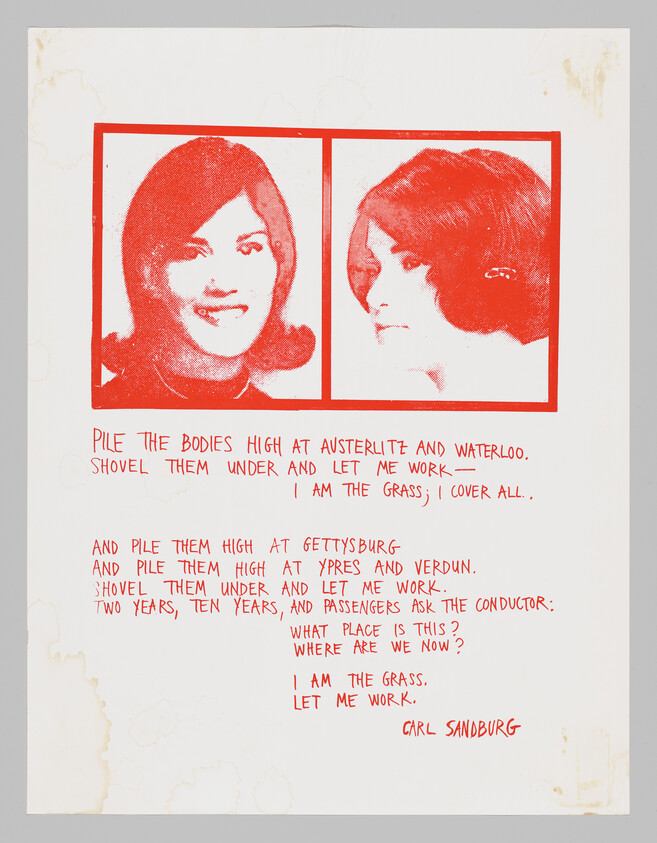 PILE THE BODIES HIGH AT AUSTERLITZ AND WATERLOO.
SHOVEL THEM UNDER AND LET ME WORK—
I AM THE GRASS; I COVER ALL..
AND PILE THEM HIGH AT GETTYSBURG
AND PILE THEM HIGH AT YPRES AND VERDUN.
SHOVEL THEM UNDER AND LET ME WORK.
TWO YEARS, TEN YEARS, AND PASSENGERS ASK THE CONDUCTOR:
WHAT PLACE IS THIS?
WHERE ARE WE NOW?
I AM THE GRASS.
LET ME WORK.
CARL SANDBURG